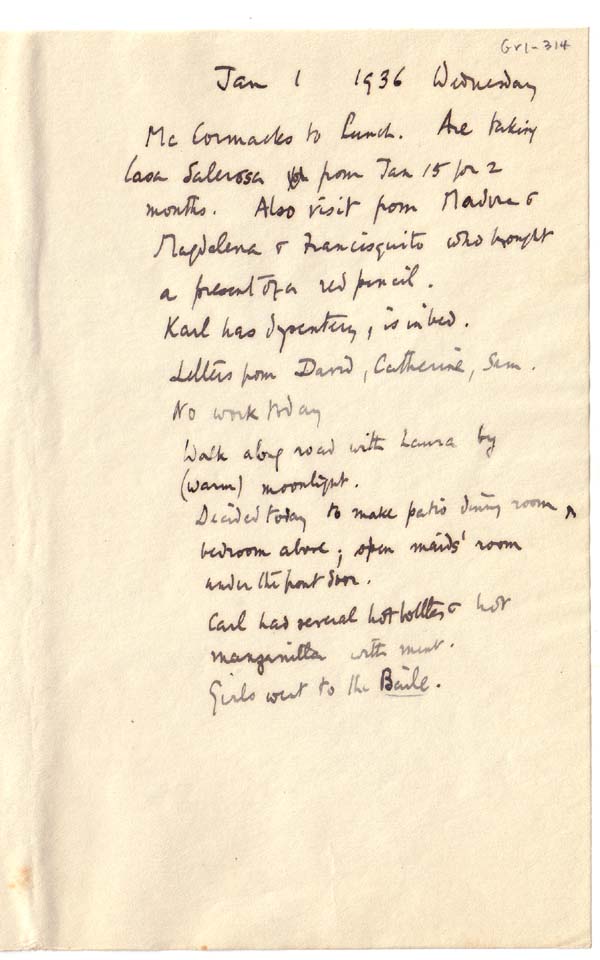 Gv1-314
Jan 1 1936 Wednesday
McCormacks to Lunch. Are taking
Casa Salerosa from Jan 15 for 2
months. Also visit from &
Magdalena & Francisquito who brought
a present of a red pencil.
Karl has dysentery, is in bed.
Letters from David, Catherine, Sam.
No work today
Walk along road with Laura by
(warm) moonlight.
Decided today to make patio dining room,
bedroom above; open maids' room
under the front door.
Carl had several hot bottles & hot
manzanilla with mint.
Girls went to the Baile.